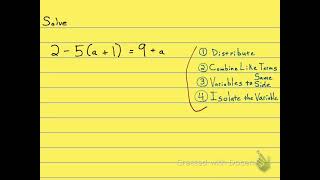 Solve
2 - 5(a + 1) = 9 + a
① Distribute
② Combine Like Terms
③ Variables to Same Side
④ Isolate the Variable
Created with Doceri